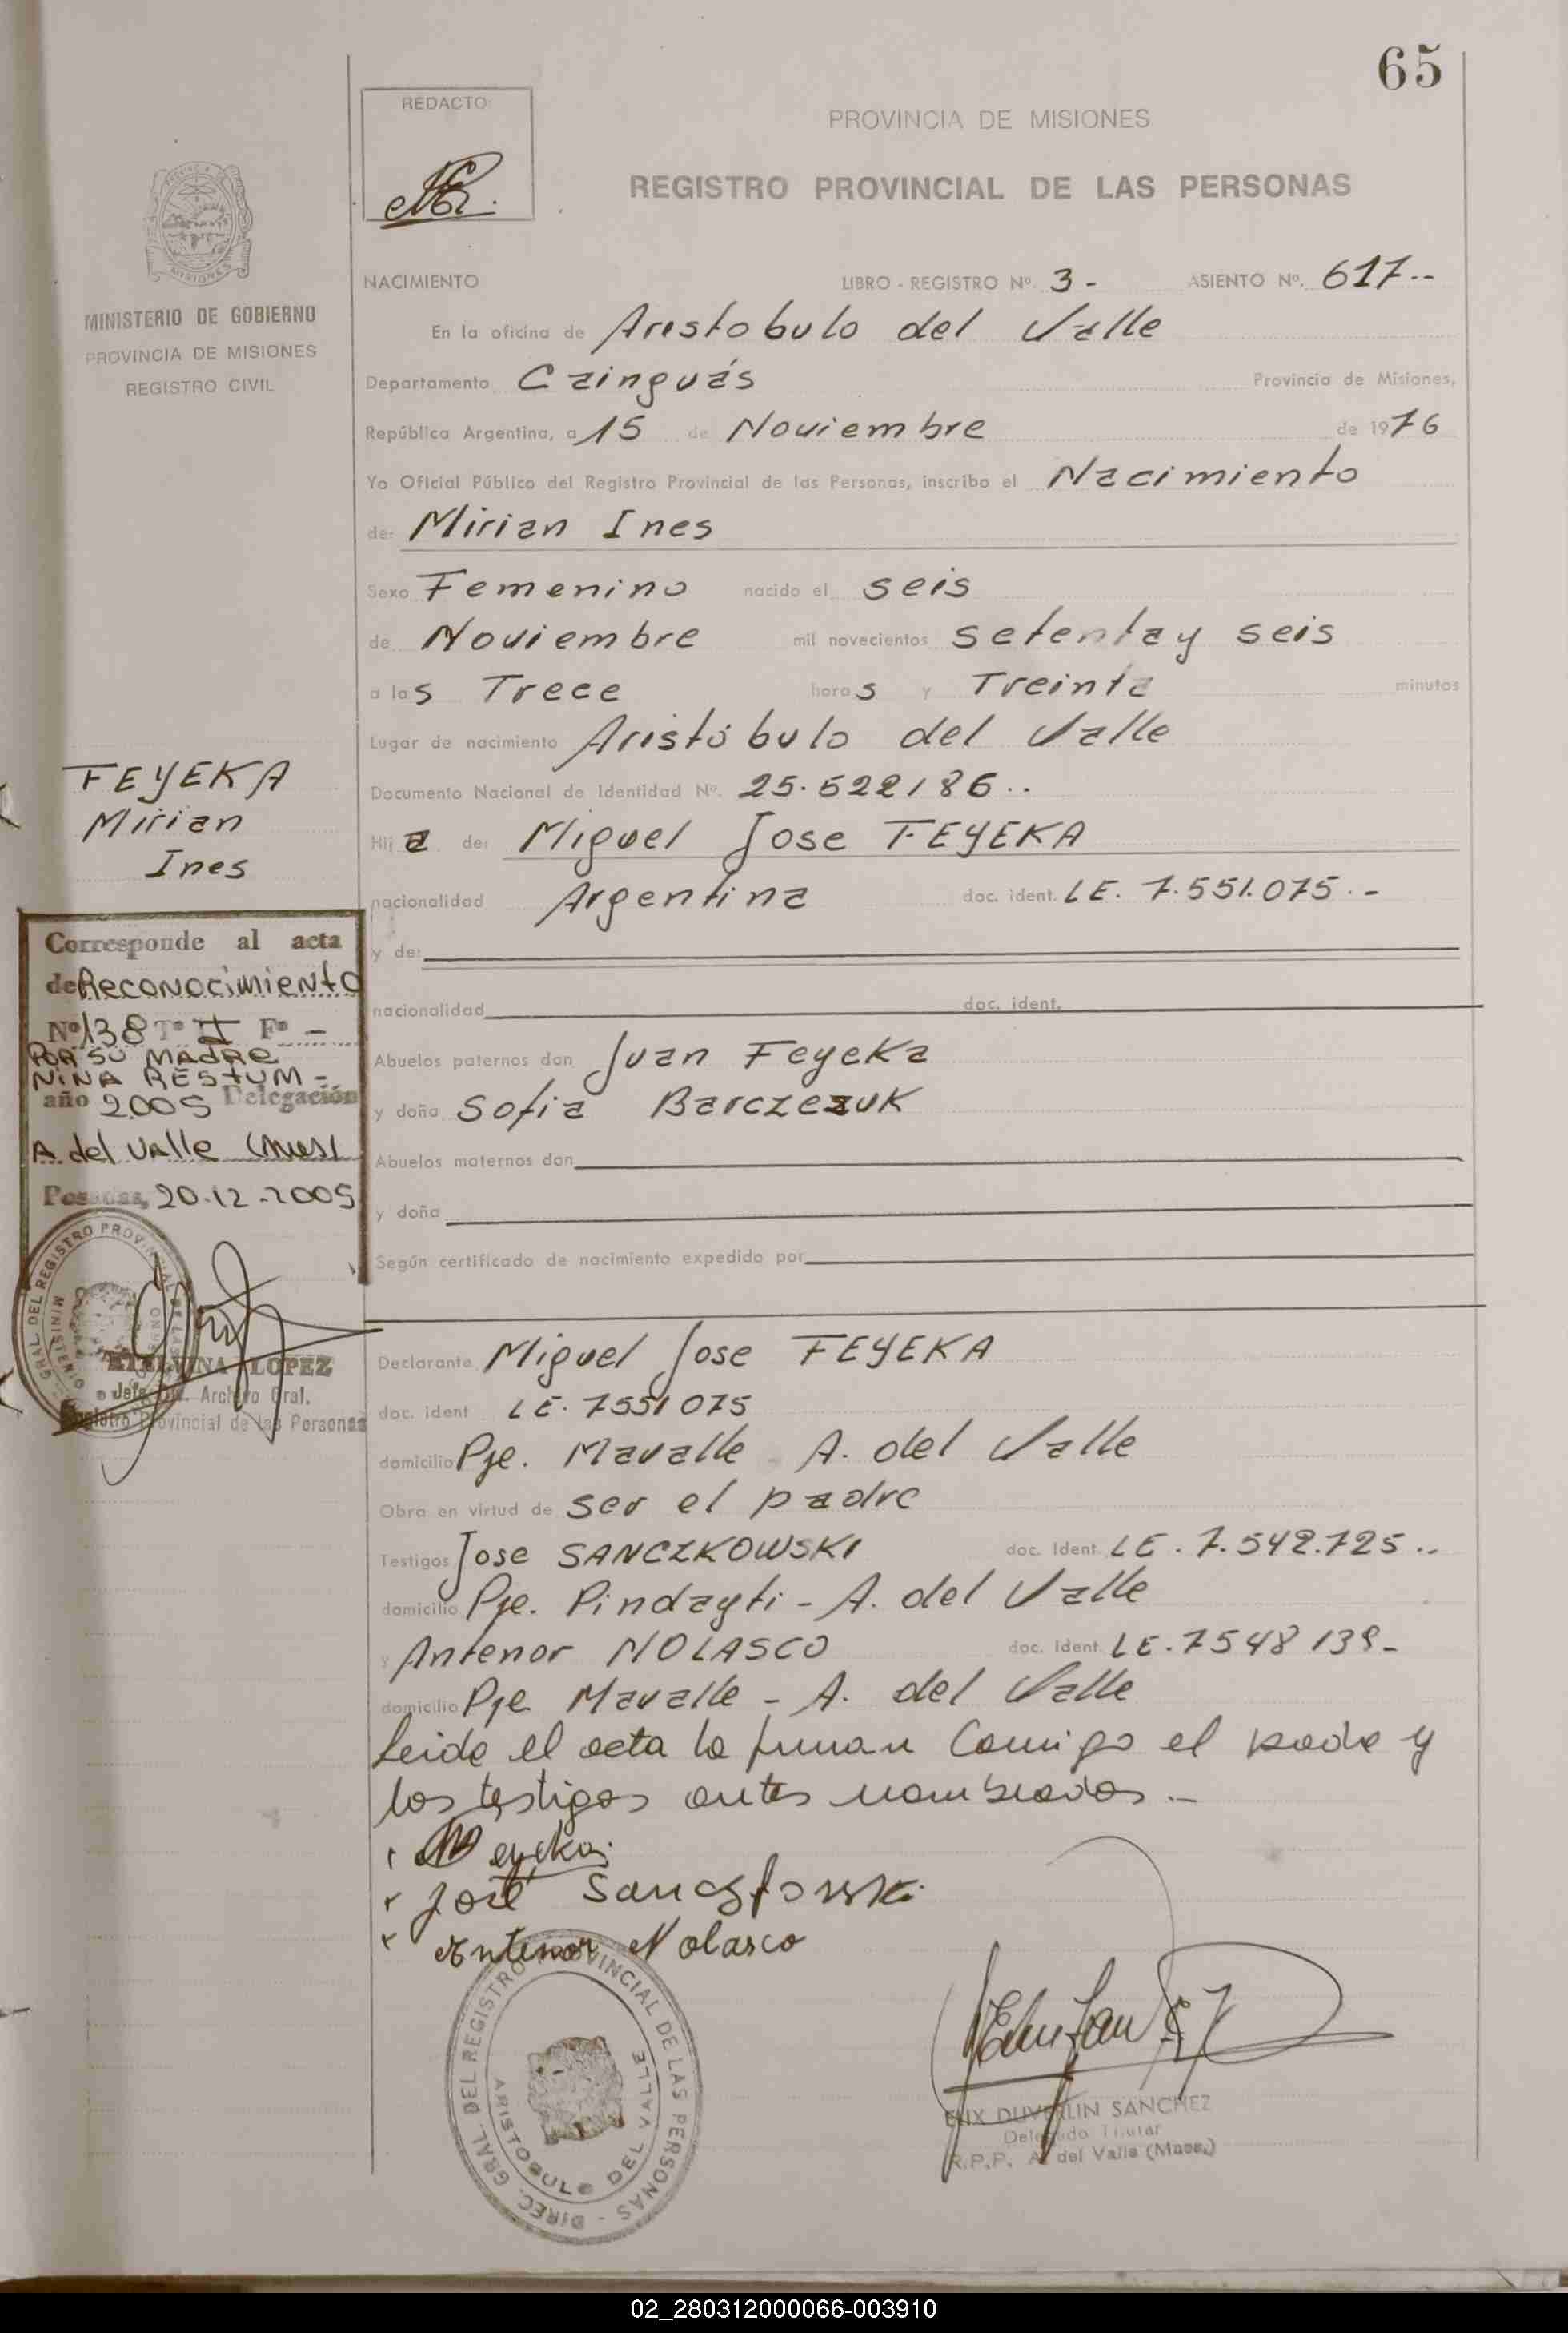 65
REDACTO:
PROVINCIA DE MISIONES
REGISTRO PROVINCIAL DE LAS PERSONAS
MISIONES
MINISTERIO DE GOBIERNO
PROVINCIA DE MISIONES
REGISTRO CIVIL
NACIMIENTO LIBRO - REGISTRO Nº. 3 - ASIENTO Nº. 617--
En la oficina de Aristobulo del Valle
Departamento Cainguás Provincia de Misiones,
República Argentina, a 15 de Noviembre de 1976
Yo Oficial Público del Registro Provincial de las Personas, inscribo el Nacimiento
de: Mirian Ines
Sexo Femenino nacido el seis
de Noviembre mil novecientos setenta y seis
a las Trece horas y Treinta minutos
Lugar de nacimiento Aristóbulo del Valle
Documento Nacional de Identidad Nº. 25.522186..
Hija de: Miguel Jose FEYEKA
nacionalidad Argentina doc. ident. LE. 7.551.075.-
y de:
nacionalidad doc. ident.
Abuelos paternos don Juan Feyeka
y doña Sofia
Abuelos maternos don
y doña
Según certificado de nacimiento expedido por
Declarante Miguel Jose FEYEKA
doc. ident LE. 7551075
domicilio Pje. Mavalle - A. del Valle
Obra en virtud de ser el padre
Testigos Jose SANCZKOWSKI doc. Ident. LE. 7.542.725..
domicilio Pje. Pindayti - A. del Valle
y Antenor NOLASCO doc. Ident. LE. 7548139-
domicilio Pje Mavalle - A. del Valle
Leida el acta la firman Comigo el padre y
los testigos antes nombrados.-
José
Antenor Nolasco
DIREC. GRAL. DEL REGISTRO PROVINCIAL DE LAS PERSONAS -
ARISTOBULO DEL VALLE
DUVERLIN SANCHEZ
Delegado Titular
R.P.P. A. del Valle (Mnes.)
FEYEKA
Mirian
Ines
Corresponde al acta
de Reconocimiento
Nº 138 Tº II Fº -
POR SU MADRE
NINA RESTUM -
año 2005 Delegación
A. del Valle (Mnes)
Posadas, 20-12-2005
GRAL. DEL REGISTRO PROVINCIAL DE LAS
LOPEZ
Jefa Archivo Gral.
Registro Provincial de las Personas
02_280312000066-003910